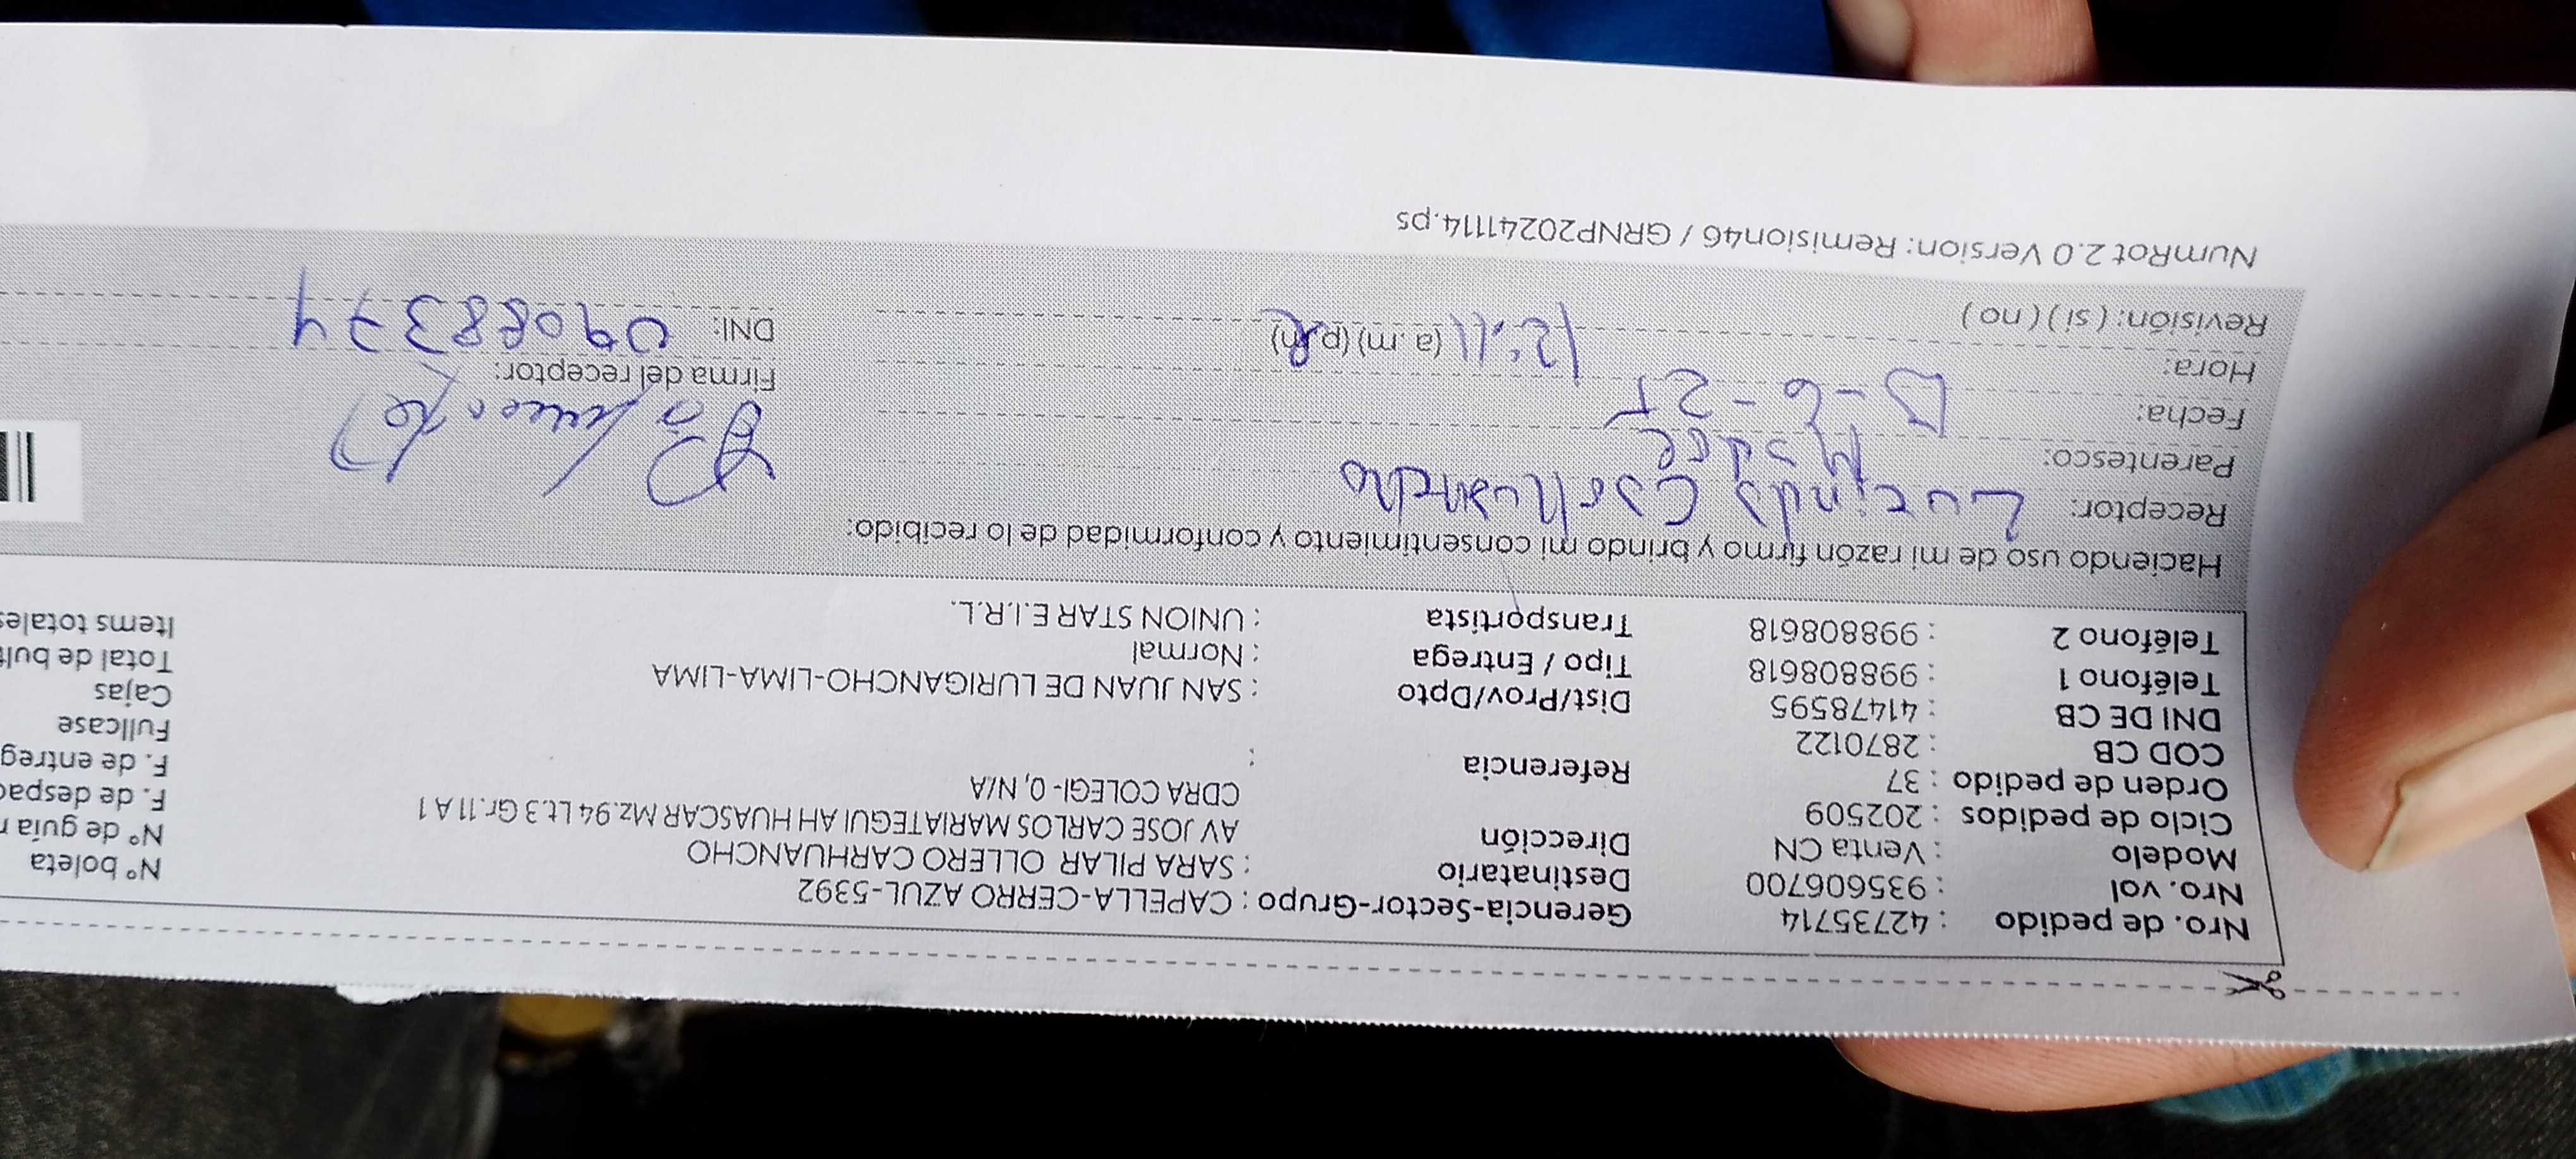 Nro. de pedido : 42735714
Nro. vol : 935606700
Modelo : Venta CN
Ciclo de pedidos : 202509
Orden de pedido : 37
COD CB : 2870122
DNI DE CB : 41478595
Teléfono 1 : 998808618
Teléfono 2 : 998808618
Gerencia-Sector-Grupo : CAPELLA-CERRO AZUL-5392
Destinatario : SARA PILAR OLLERO CARHUANCHO
Dirección AV JOSE CARLOS MARIATEGUI AH HUASCAR Mz.94 Lt.3 Gr.11 A 1
CDRA COLEGI- 0, N/A
Referencia :
Dist/Prov/Dpto : SAN JUAN DE LURIGANCHO-LIMA-LIMA
Tipo / Entrega : Normal
Transportista : UNION STAR E.I.R.L.
N° boleta
N° de guía r
F. de despac
F. de entreg
Fullcase
Cajas
Total de bult
Items totales
Haciendo uso de mi razón firmo y brindo mi consentimiento y conformidad de lo recibido:
Receptor: Lucinda Carhuancho
Parentesco: Madre
Fecha: -6-25
Hora: 12:11 (a.m) (p.m)
Revisión: (si) (no)
Firma del receptor:
DNI: 09088374
NumRot 2.0 Version: Remision46 / GRNP20241114.ps